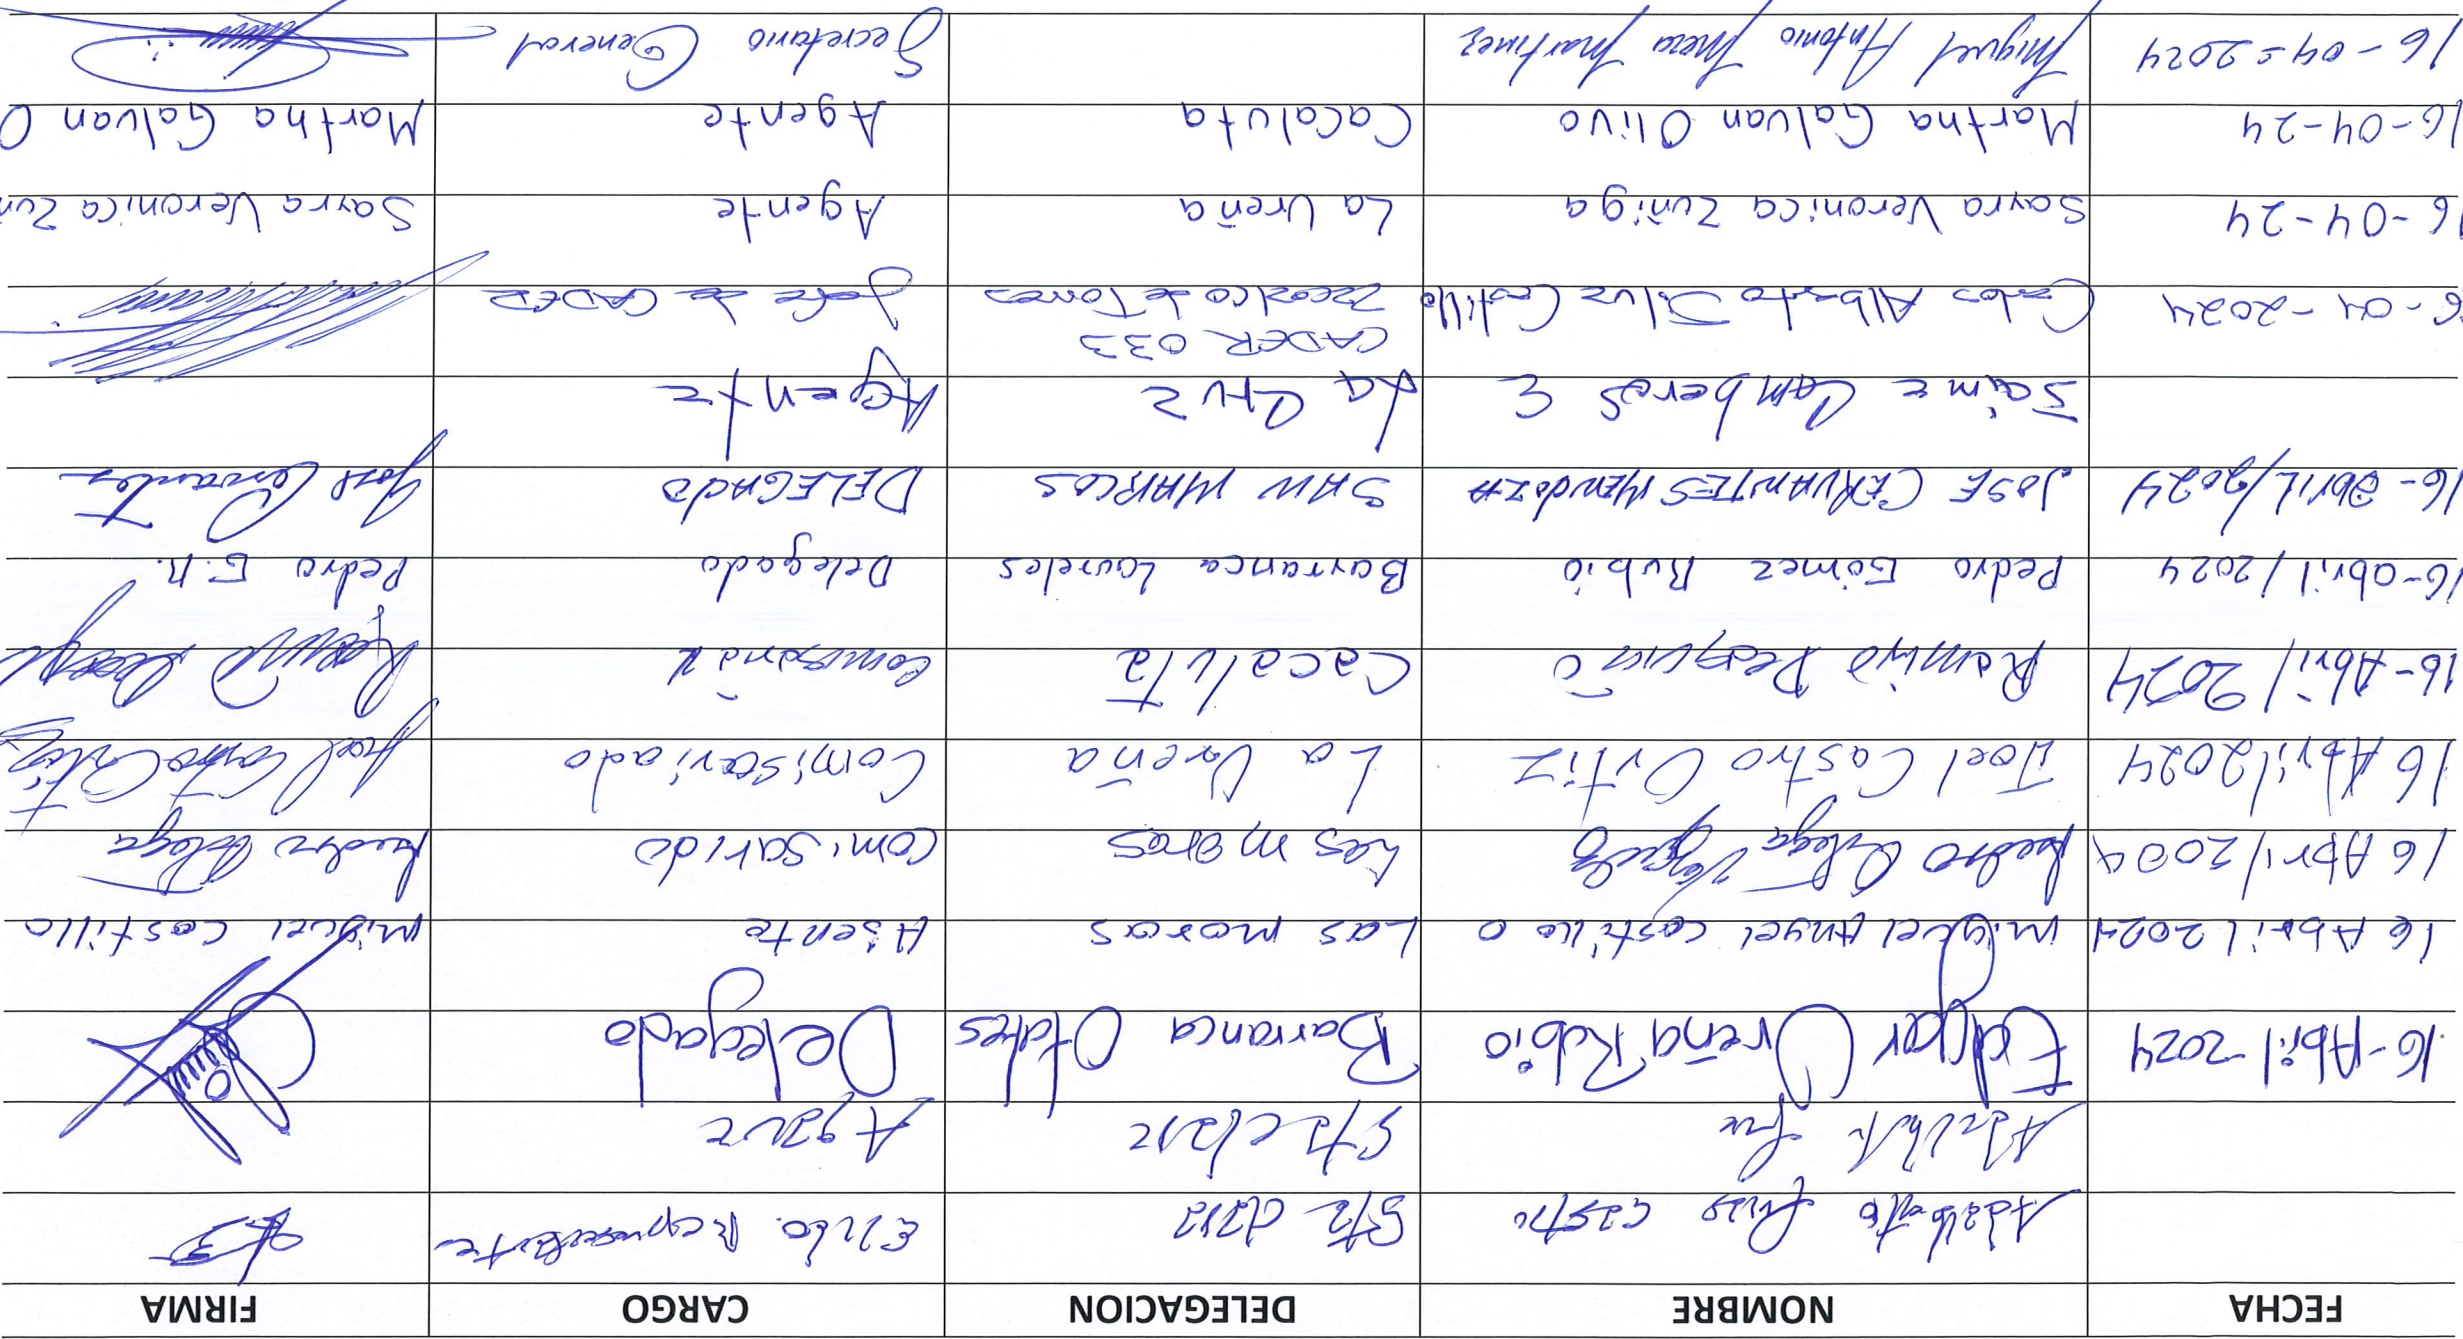 FECHA NOMBRE DELEGACION CARGO FIRMA
Adalberto Cruz Castro Sta Clara Ejido. Representante
Sta Clara
16-Abril-2024 Edgar Ureña Rubio Barranca Otates Delegado
16 Abril 2024 Miguel Angel castillo O Las moras Agente Miguel castillo
16 Abril 2004 Pedro Ortega Las moras Comisarido Pedro Ortega
16 Abril 2024 Joel Castro Ortiz La Ureña Comisariado Joel Castro Ortiz
16-Abril 2024 Ramiro Cacaluta
16-abril/2024 Pedro Gómez Rubio Barranca Laureles Delegado Pedro G.R.
16-abril/2024 JOSE CERVANTES MENDOZA SAN MARCOS DELEGADO Jose Cervantes
Jaime Camberos C La Cruz Agente
16-04-2024 Carlos Alberto Silva Castillo CADER 033 Jefe de CADER
Zacoalco de Torres
16-04-24 Sayra Veronica Zuñiga La Ureña Agente Sayra Veronica Zuñ
16-04-24 Martha Galvan Olivo Cacaluta Agente Martha Galvan O
16-04-2024 Miguel Antonio Meza Martinez Secretario General